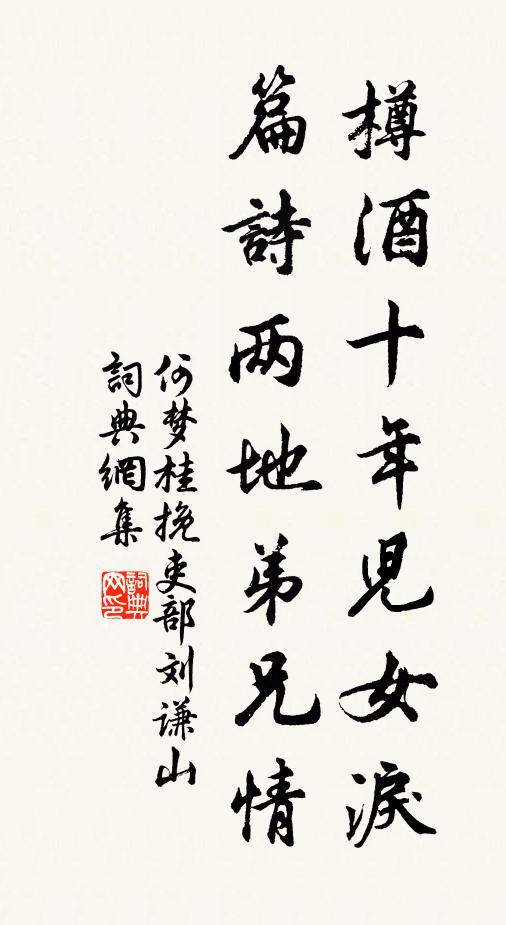 樽酒十年兒女淚
篇詩两地弟兄情
何梦桂挽吏部刘谦山
詞典網集
詞典网印